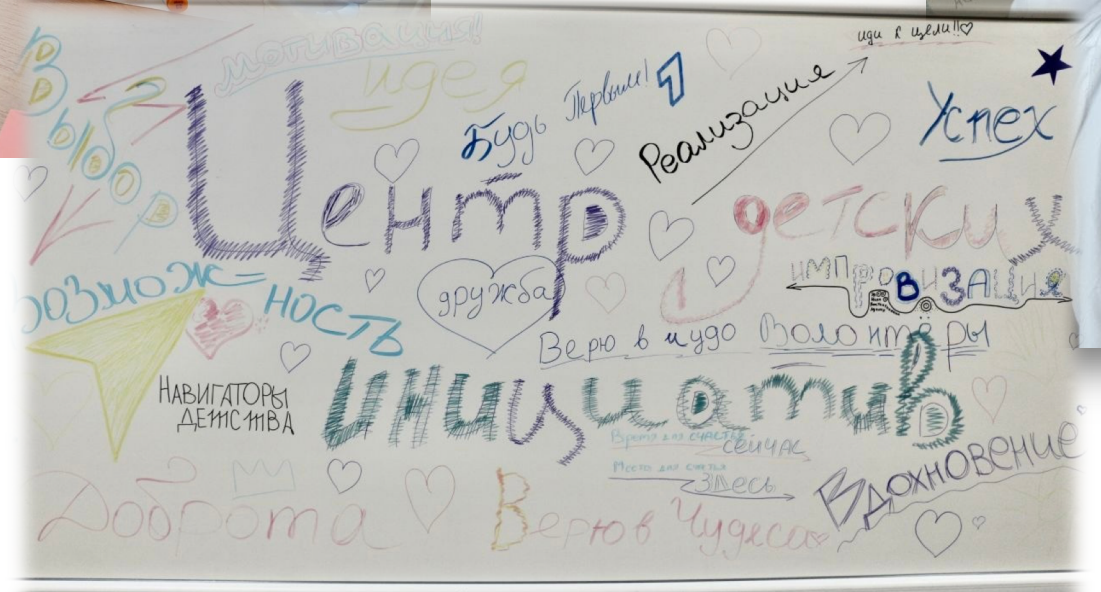 мотивация!
иди к цели!!
идея
Выбор
Будь Первым! 1
Реализация
Успех
Центр
детских
импроВИЗАЦИЯ
дружба
возмож=
ность
Верю в чудо Волонтёры
Навигаторы
детства
инициатив
Время для счастья
сейчас
Место для счастья
здесь
Вдохновение
Доброта
Верю в Чудеса